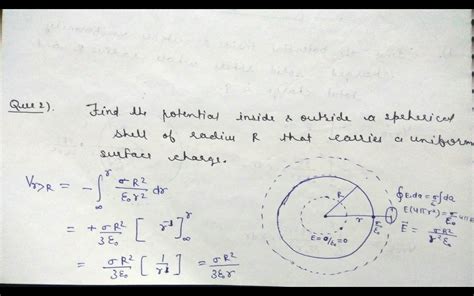 Que 2).
Find the potential inside & outside a spherical
shell of radius R that carries a uniform
surface charge.
V_{r>R} = -∫_∞^r σR²/ε₀r² dr
= + σR²/3ε₀ [ r⁻¹ ]_∞^r
= σR²/3ε₀ [ 1/r ] = σR²/3ε₀r
R
r
E = 0/ε₀ = 0
∮E.da = σ/ε₀ ∫da
E(4πr²) =
E⃗ = σR²/r²ε₀